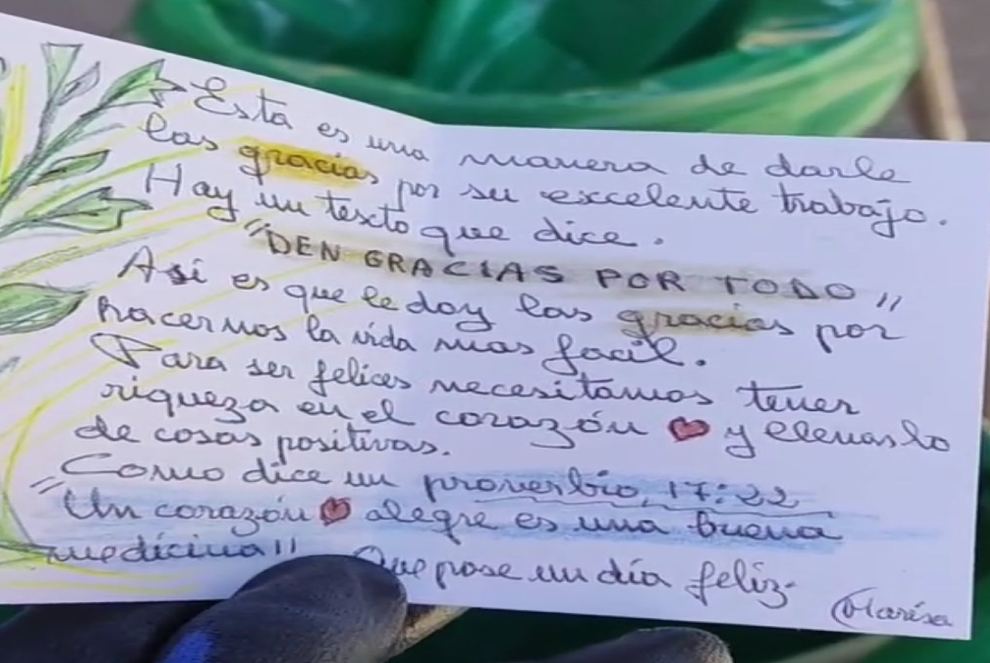 Esta es una manera de darle
las gracias por su excelente trabajo.
Hay un texto que dice.
"DEN GRACIAS POR TODO"
Asi es que le doy las gracias por
hacernos la vida mas facil.
Para ser felices necesitamos tener
riqueza en el corazón y llenarlo
de cosas positivas.
Como dice un proverbio, 17:22
"Un corazón alegre es una buena
medicina" Que pase un día feliz.
Marisa